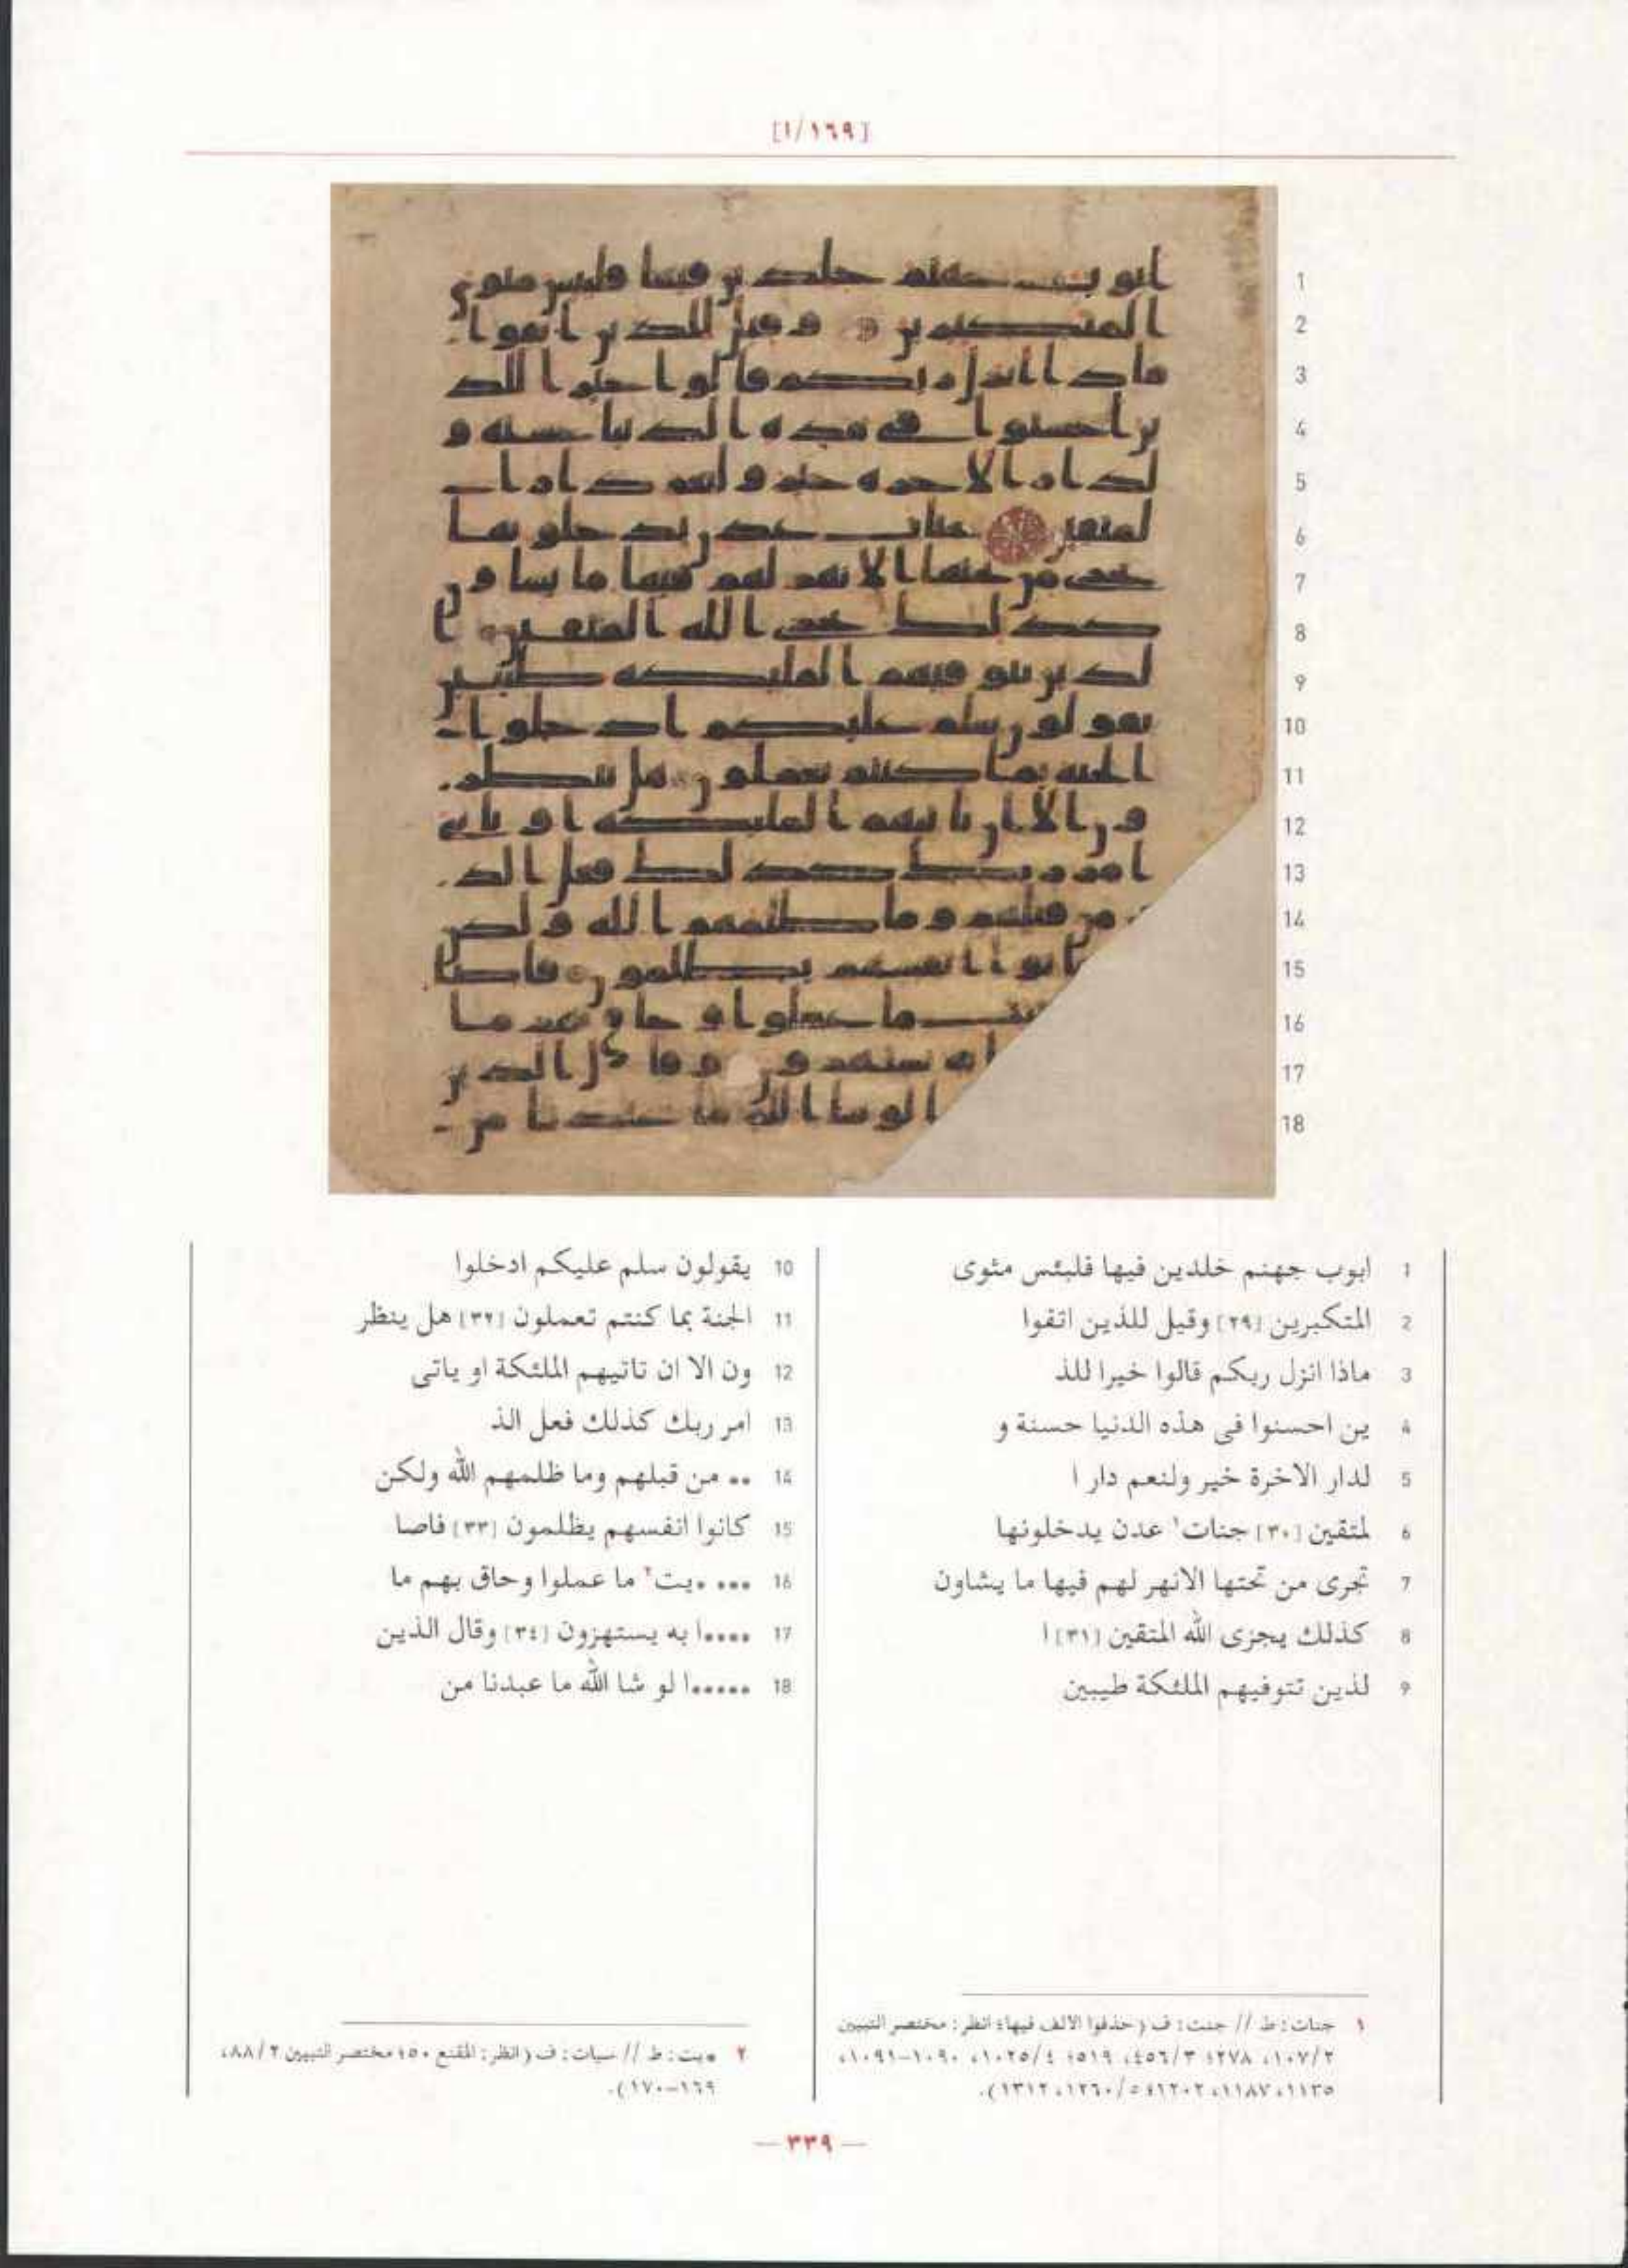 [١/١٦٩]
1 ابوب جهنم خلدين فيها فلبئس مثوى
2 المتكبرين [٢٩] وقيل للذين اتقوا
3 ماذا انزل ربكم قالوا خيرا للذ
4 ين احسنوا فى هذه الدنيا حسنة و
5 لدار الاخرة خير ولنعم دار ا
6 لمتقين [٣٠] جنات١ عدن يدخلونها
7 تجرى من تحتها الانهر لهم فيها ما يشاون
8 كذلك يجزى الله المتقين [٣١] ا
9 لذين تتوفيهم الملئكة طيبين
10 يقولون سلم عليكم ادخلوا
11 الجنة بما كنتم تعملون [٣٢] هل ينظر
12 ون الا ان تاتيهم الملئكة او ياتى
13 امر ربك كذلك فعل الذ
14 •• من قبلهم وما ظلمهم الله ولكن
15 كانوا انفسهم يظلمون [٣٣] فاصا
16 ••• •يت٢ ما عملوا وحاق بهم ما
17 ••••ا به يستهزون [٣٤] وقال الذين
18 •••••ا لو شا الله ما عبدنا من
١ جنات: ط // جنت: ف (حذفوا الالف فيها؛ انظر: مختصر التبيين
١٠٧/٢، ٢٧٨؛ ٤٥٦/٣، ٥١٩؛ ١٠٢٥/٤، ١٠٩٠-١٠٩١،
١١٣٥، ١١٨٧، ١٢٠٢؛ ١٢٦٠/٥، ١٣١٢).
٢ •يت: ط // سيات: ف (انظر: المقنع ٥٠؛ مختصر التبيين ٨٨/٢،
١٦٩-١٧٠).
— ٣٣٩ —